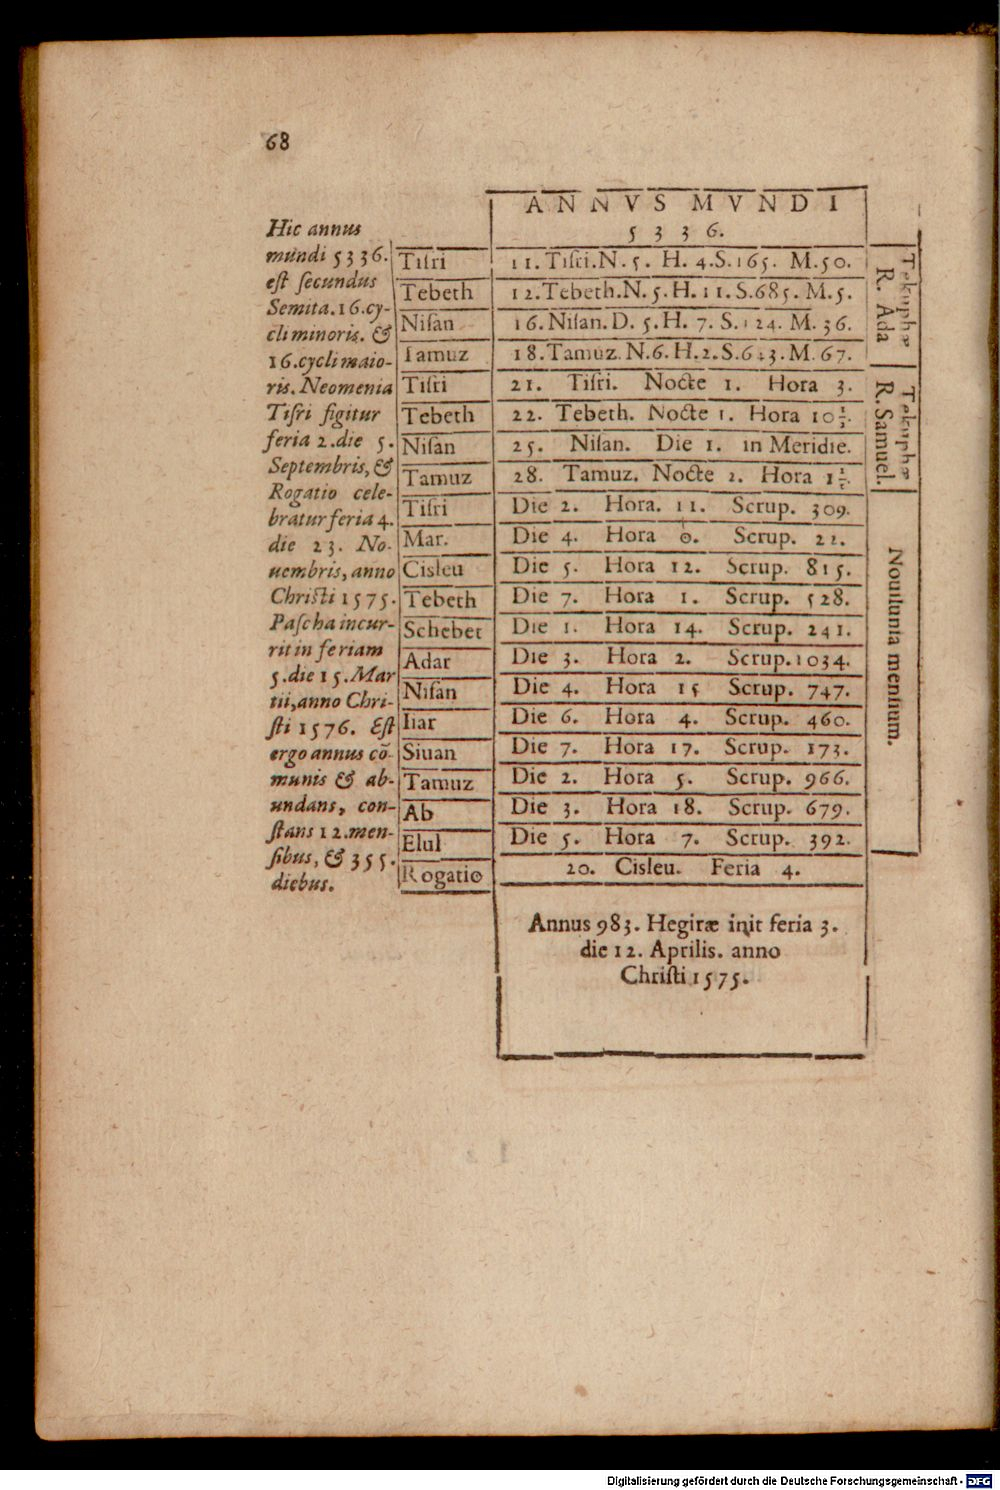 68
Hic annus
mundi 5336.
est secundus
Semita.16.cy-
cli minoris. &
16.cycli maio-
ris. Neomenia
Tisri figitur
feria 2.die 5.
Septembris, &
Rogatio cele-
bratur feria 4.
die 23. No-
uembris, anno
Christi 1575.
Pascha incur-
rit in feriam
5.die 15.Mar
tii,anno Chri-
sti 1576. Est
ergo annus cō-
munis & ab-
undans, con-
stans 12.men-
sibus, & 355.
diebus.
ANNVS MVNDI
5336.
Tisri 11.Tisri.N.5. H.4.S.165. M.50.
Tebeth 12.Tebeth.N.5.H.11.S.685.M.5.
Nisan 16.Nisan.D. 5.H. 7. S.124. M. 36.
Tamuz 18.Tamuz.N.6.H.2.S.643.M.67.
Tisri 21. Tisri. Nocte 1. Hora 3.
Tebeth 22. Tebeth. Nocte 1. Hora 10½.
Nisan 25. Nisan. Die 1. in Meridie.
Tamuz 28. Tamuz. Nocte 2. Hora 1
Tisri Die 2. Hora. 11. Scrup. 309.
Mar. Die 4. Hora 0. Scrup. 22.
Cisleu Die 5. Hora 12. Scrup. 815.
Tebeth Die 7. Hora 1. Scrup. 528.
Schebet Die 1. Hora 14. Scrup. 241.
Adar Die 3. Hora 2. Scrup.1034.
Nisan Die 4. Hora 15 Scrup. 747.
Iiar Die 6. Hora 4. Scrup. 460.
Siuan Die 7. Hora 17. Scrup. 173.
Tamuz Die 2. Hora 5. Scrup. 966.
Ab Die 3. Hora 18. Scrup. 679.
Elul Die 5. Hora 7. Scrup. 392.
Rogatio 20. Cisleu. Feria 4.
Tekuphæ
R. Ada
Tekuphæ
R. Samuel.
Nouilunia mensium.
Annus 983. Hegiræ init feria 3.
die 12. Aprilis. anno
Christi 1575.
Digitalisierung gefördert durch die Deutsche Forschungsgemeinschaft - DFG